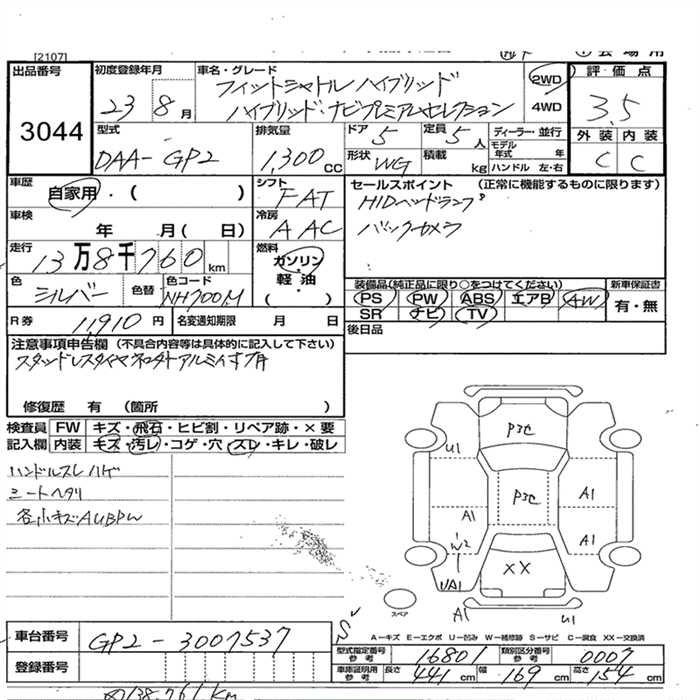 [2107]
出品番号 初度登録年月 車名・グレード 評価点
3044 23 8月 フィットシャトルハイブリッド 2WD 3.5
ハイブリッド・ナビプレミアムセレクション 4WD
外装 内装
C C
型式 排気量 ドア 5 定員 5人 ディーラー・並行
DAA-GP2 1,300cc 形状 WG 積載 kg モデル年式 年
ハンドル 左・右
車歴 自家用・( ) シフト FAT セールスポイント (正常に機能するものに限ります)
車検 年 月( 日) 冷房 AAC HIDヘッドランプ
バックカメラ
走行 13万8千760km 燃料 ガソリン・軽油・( )
色 シルバー 色替 色コード NH700M
装備品(純正品に限り○をつけてください) 新車保証書
PS PW ABS エアB AW 有・無
SR ナビ TV
R券 11,910円 名変通知期限 月 日 後日品
注意事項申告欄 (不具合内容等は具体的に記入して下さい)
スタッドレスタイヤ
修復歴 有 (箇所 )
検査員 FW キズ・飛石・ヒビ割・リペア跡・×要
記入欄 内装 キズ・汚レ・コゲ・穴・スレ・キレ・破レ
ハンドルスレハゲ
シートヘタリ
各小キズAUBPW
P3C
U1
P3C
A1
A1
A1
W2
XX
UA1
スペア
A1
U1
S
A−キズ E−エクボ U−凹み W−補修跡 S−サビ C−腐食 XX−交換済
車台番号 GP2-3007537
型式指定番号参考 16801 類別区分番号参考 0007
登録番号
車庫証明用参考 長さ 441cm 幅 169cm 高さ 154cm
138,761Km